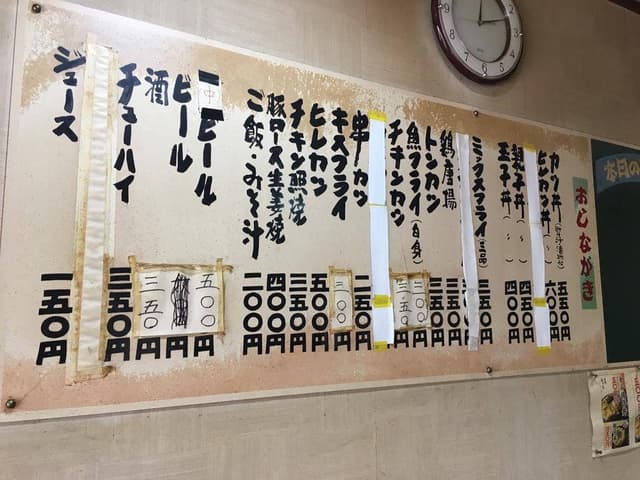 本日の
おしながき
カツ丼(吸物漬物付) 五五〇円
ヒレカツ丼(〃) 六〇〇円
親子丼(〃) 四五〇円
玉子丼(〃) 四五〇円
ミックスフライ(三品)
鶏唐揚 三五〇円
トンカツ 三五〇円
魚フライ(白身)
チキンカツ 三五〇円
串カツ 二五〇円
キスフライ 三〇〇円
ヒレカツ 五五〇円
チキン照焼 三五〇円
豚ロース生姜焼 四〇〇円
ご飯・みそ汁 二〇〇円
中ビール 五〇〇円
ビール 円
酒 三五〇円
チューハイ 三五〇円
ジュース 一五〇円